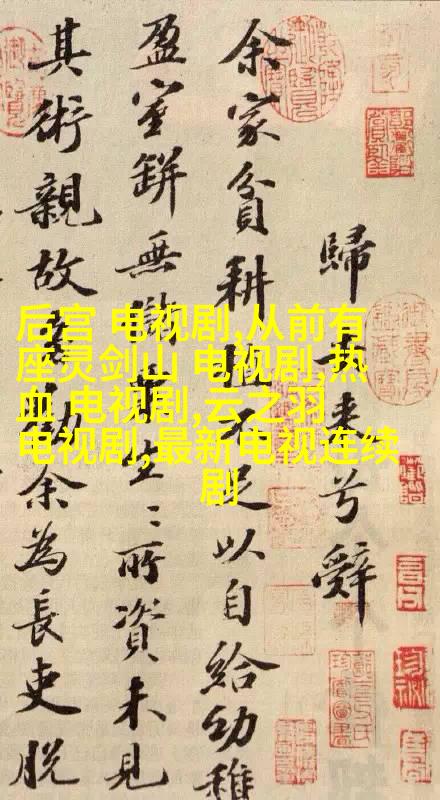 后宫 电视剧,从前有
座灵剑山 电视剧,热
血 电视剧,云之羽
电视剧,最新电视连续
剧
歸去來兮辭
余家貧耕植不足以自給幼稚
盈室缾無儲粟生〻所資未見
其術親故多勸余為長吏脫